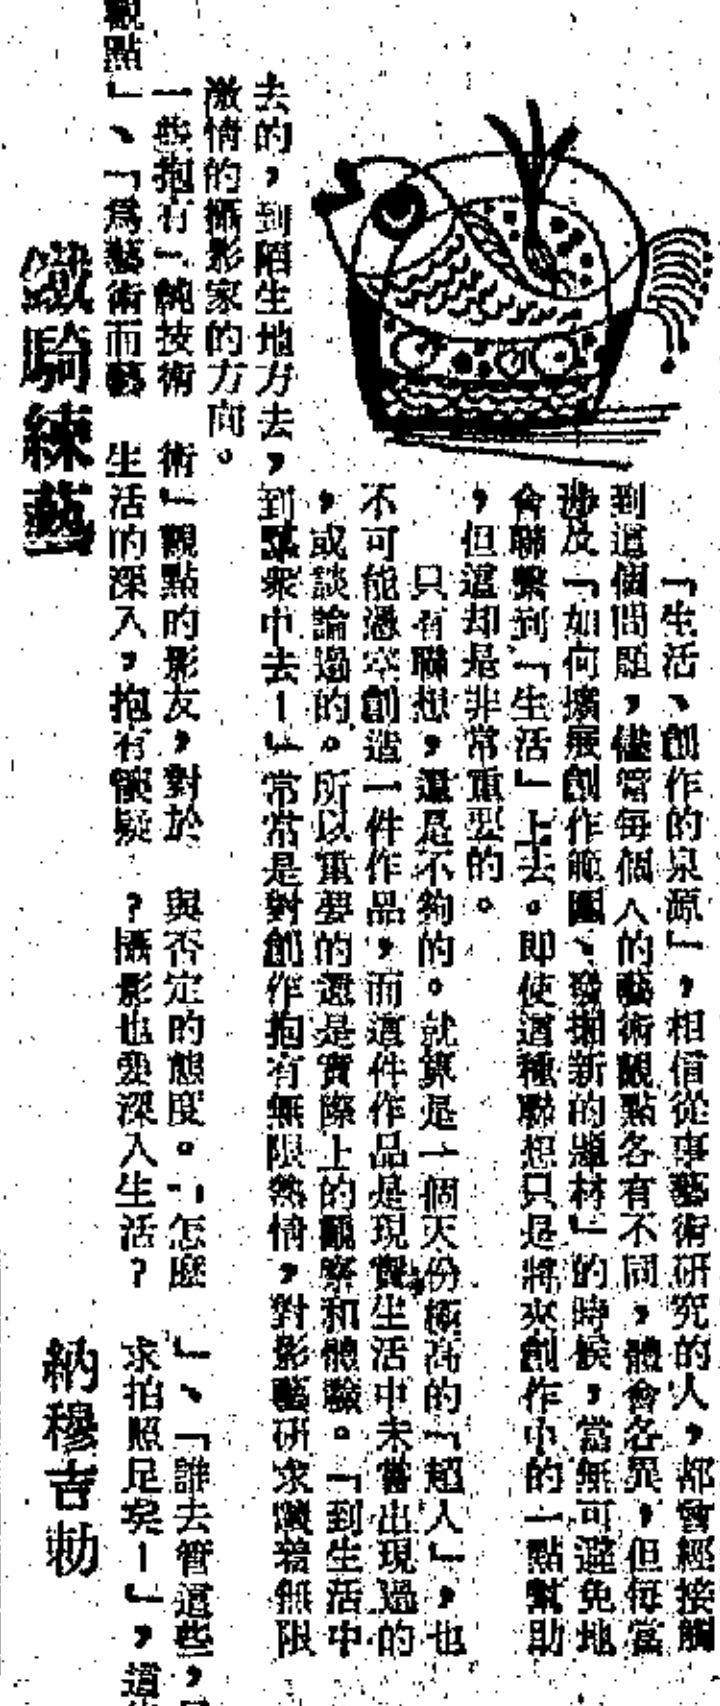 鐵騎練藝
納穆吉勒
「生活、創作的泉源」，相信從事藝術研究的人，都會經接觸
到這個問題，儘管每個人的藝術觀點各有不同，體會各異，但每當
涉及「如何擴展創作範圍、發掘新的題材」的時候，當無可避免地
會聯繫到「生活」上去。即使這種聯想只是將來創作中的一點幫助
，但這却是非常重要的。
只有聯想，還是不夠的。就算是一個天份極高的「超人」，也
不可能憑空創造一件作品，而這件作品是現實生活中未嘗出現過的
，或談論過的。所以重要的還是實際上的觀察和體驗。「到生活中
去的，到陌生地方去，到羣衆中去！」常常是對創作抱有無限熱情，對影藝研求着無限
激情的攝影家的方向。
一些抱有「純技術
觀點」、「爲藝術而藝
術」觀點的影友，對於
生活的深入，抱有懷疑
與否定的態度。「怎麼
？攝影也要深入生活？
」、「誰去管這些，
求拍照足矣！」，這